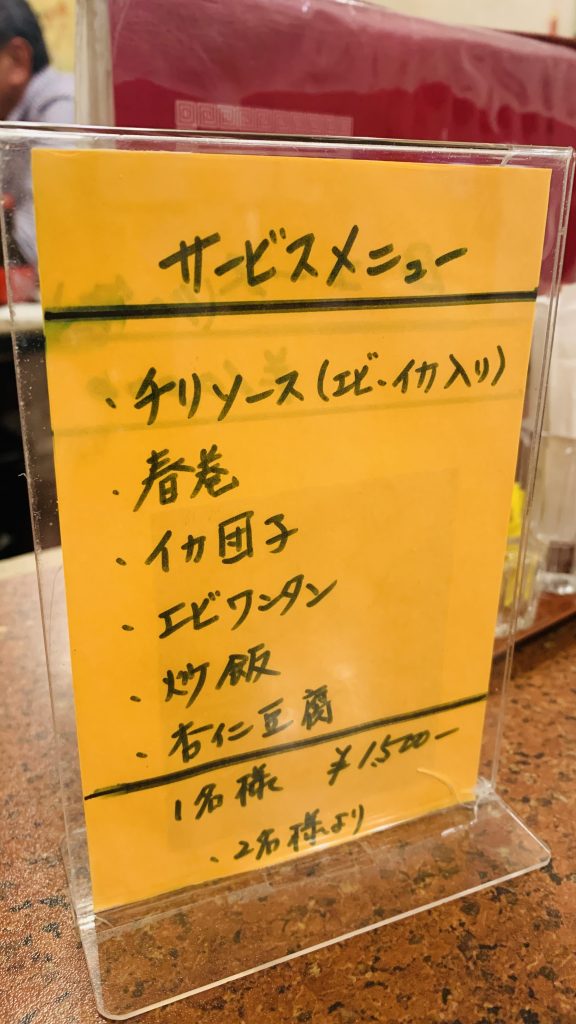 サービスメニュー
・チリソース(エビ・イカ入り)
・春巻
・イカ団子
・エビワンタン
・炒飯
・杏仁豆腐
1名様 ¥1,500-
・2名様より